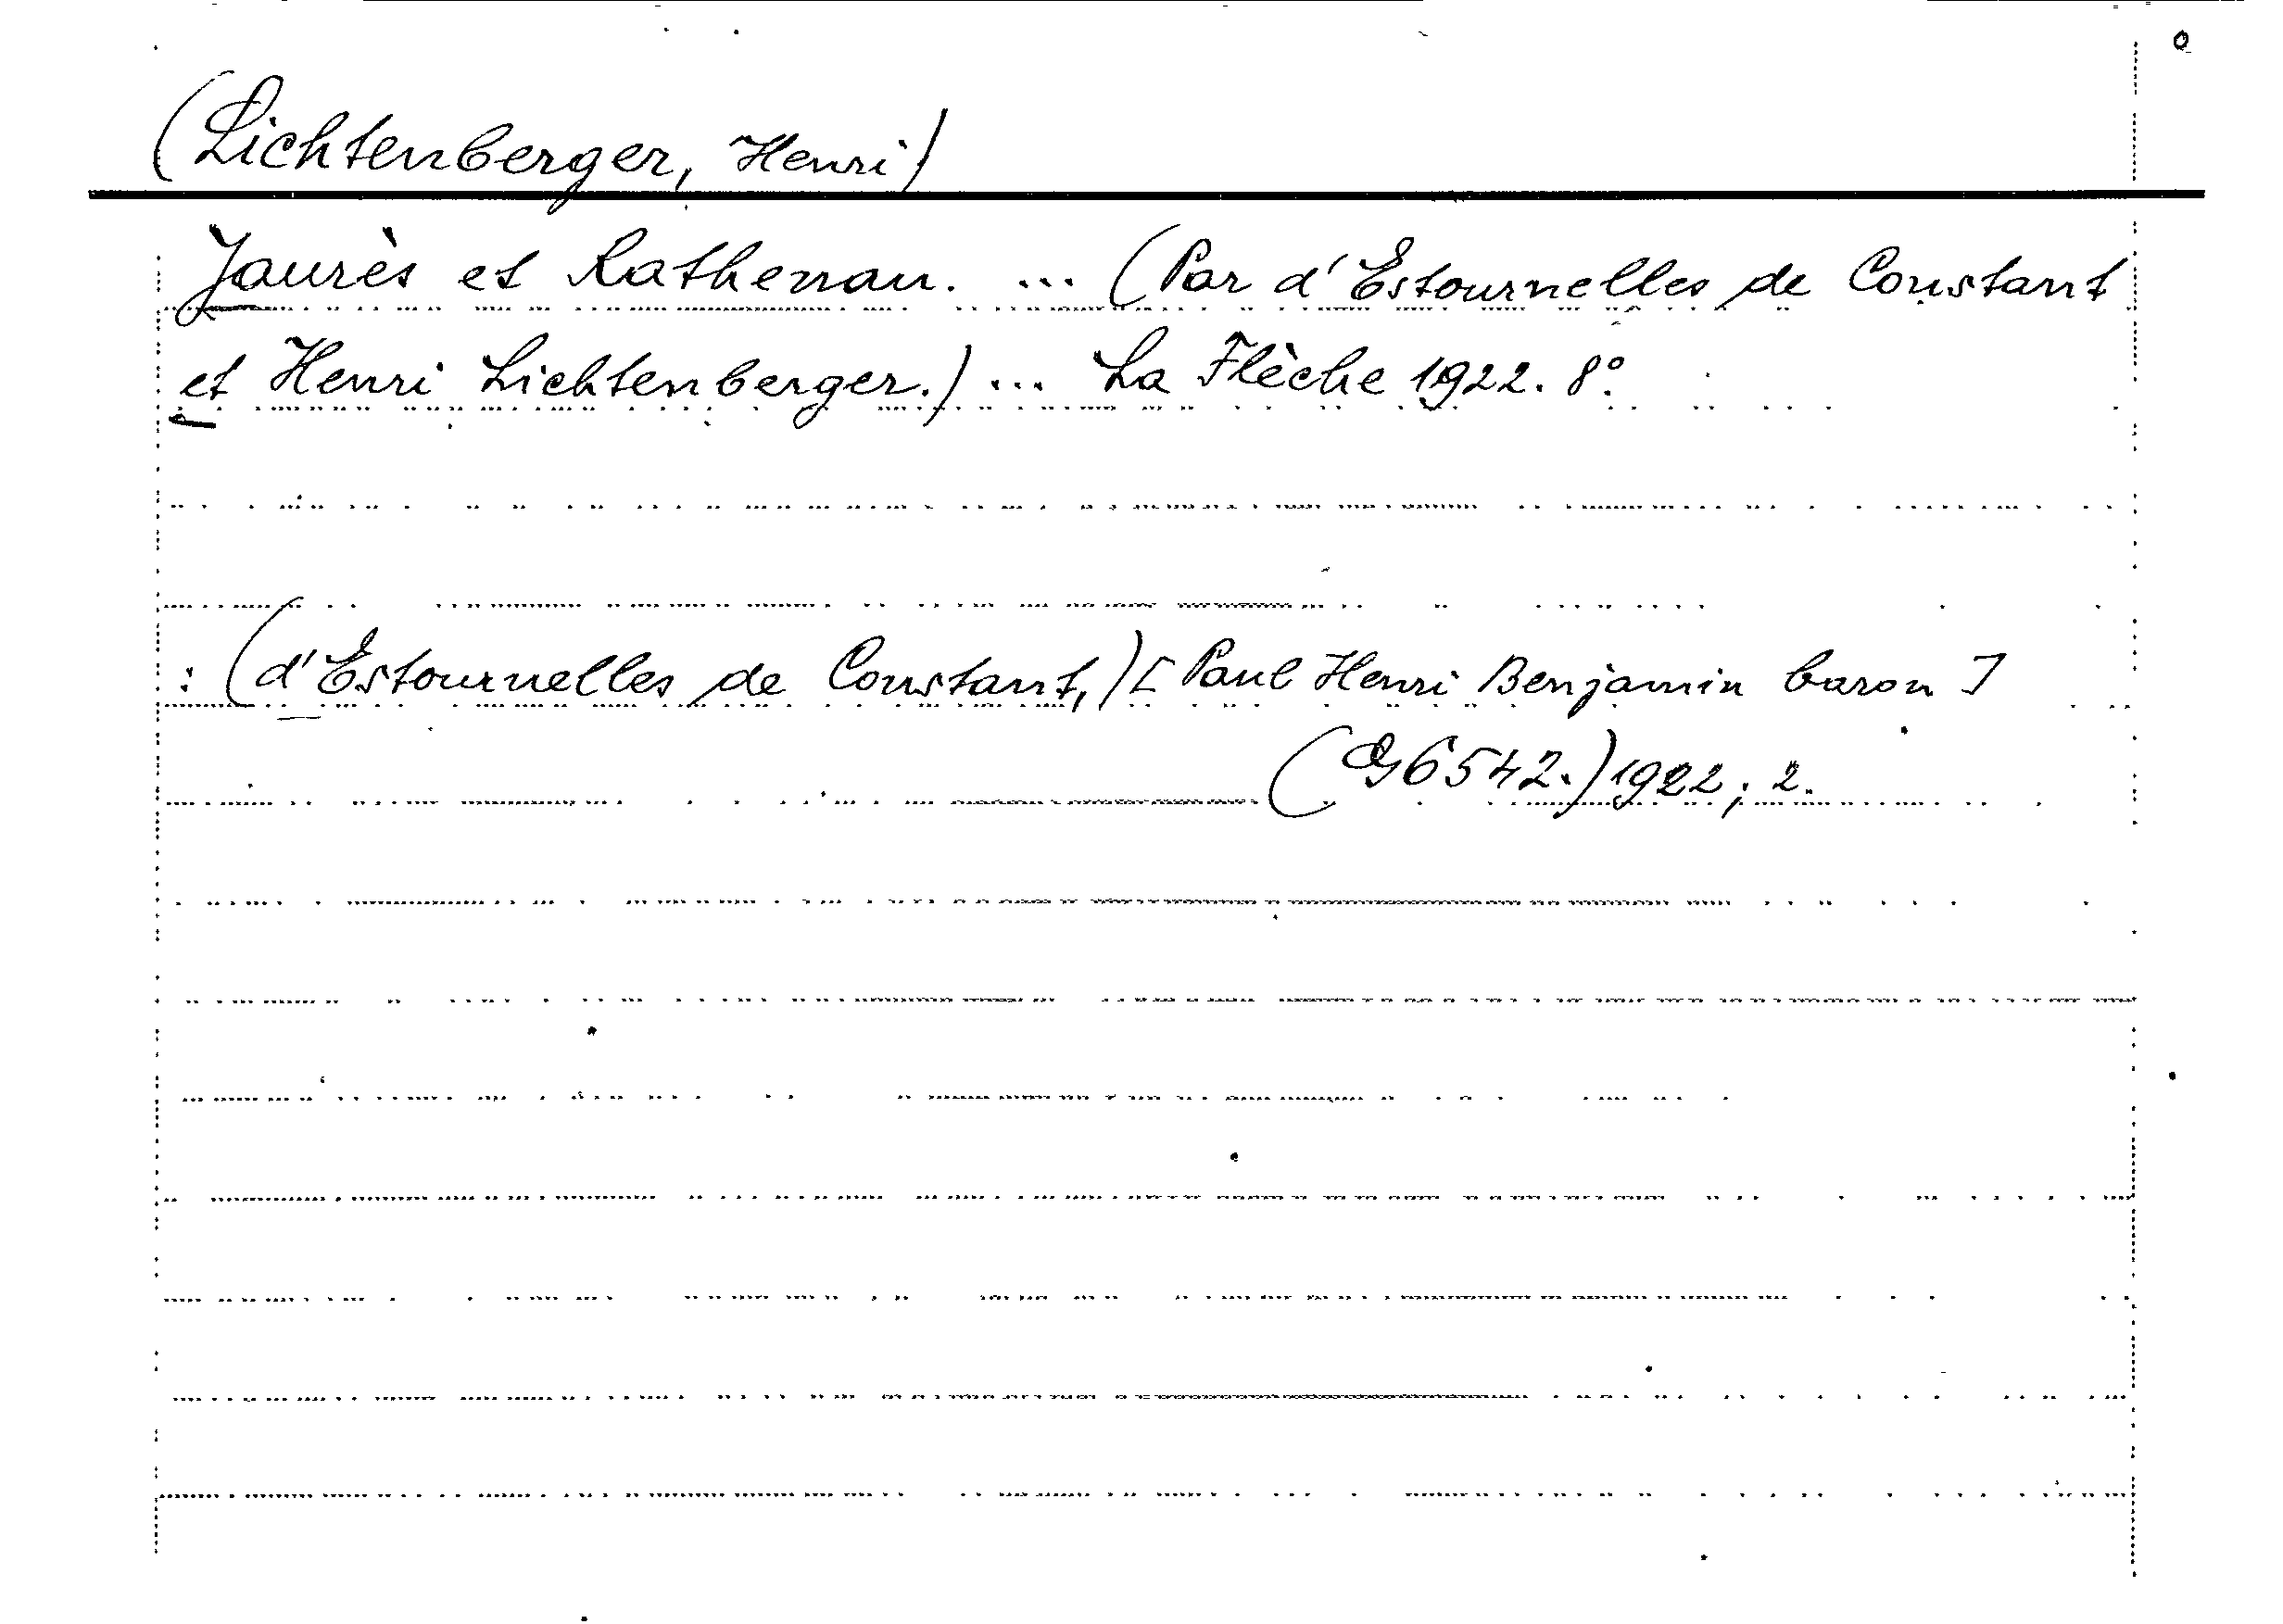 (Lichtenberger, Henri)
Jaurès et Rathenau. ... (Par d'Estournelles de Constant
et Henri Lichtenberger.) ... La Flèche 1922. 8°.
: (d'Estournelles de Constant,) [Paul Henri Benjamin baron]
(G6542.) 1922; 2.